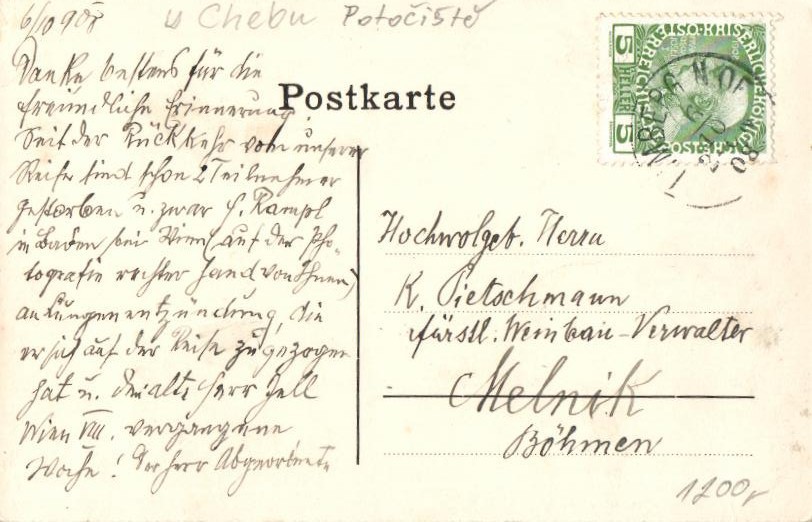 6/10 908
u Chebu Potočiště
Danke bestens für die
freundliche Erinnerung.
Seit der Rückkehr von unserer
Reise sind schon 2 Teilnehmer
gestorben u. zwar H. Rampl
in Baden bei Wien (auf der Pho-
tografie rechter Hand von Ihnen)
an Lungenentzündung, die
er sich auf der Reise zugezogen
hat u. der alte Herr Zell
Wien VIII. vergangene
Woche! Der Herr Abgeordnete
Postkarte
5 HELLER 5
6 10
08
Hochwolgeb. Herrn
K. Pietschmann
fürstl. Weinbau-Verwalter
Melnik
Böhmen
1200,